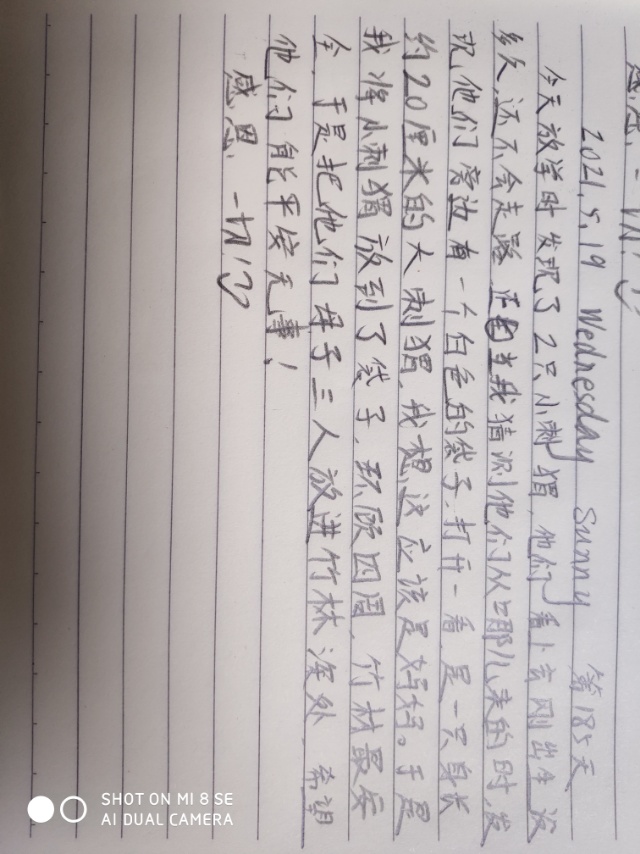 感恩一切!
2021.5.19 Wednesday Sunny 第185天
今天放学时发现了2只小刺猬,他们看上去刚出生没
多久,还不会走路 正当我猜测他们从哪儿来的时,发
现他们旁边有一个白色的袋子,打开一看,是一只身长
约20厘米的大刺猬,我想这应该是妈妈。于是
我将小刺猬放到了袋子,环顾四周,竹林最安
全,于是把他们母子三人放进竹林深处 希望
他们能平安无事!
感恩一切!
SHOT ON MI 8 SE
AI DUAL CAMERA